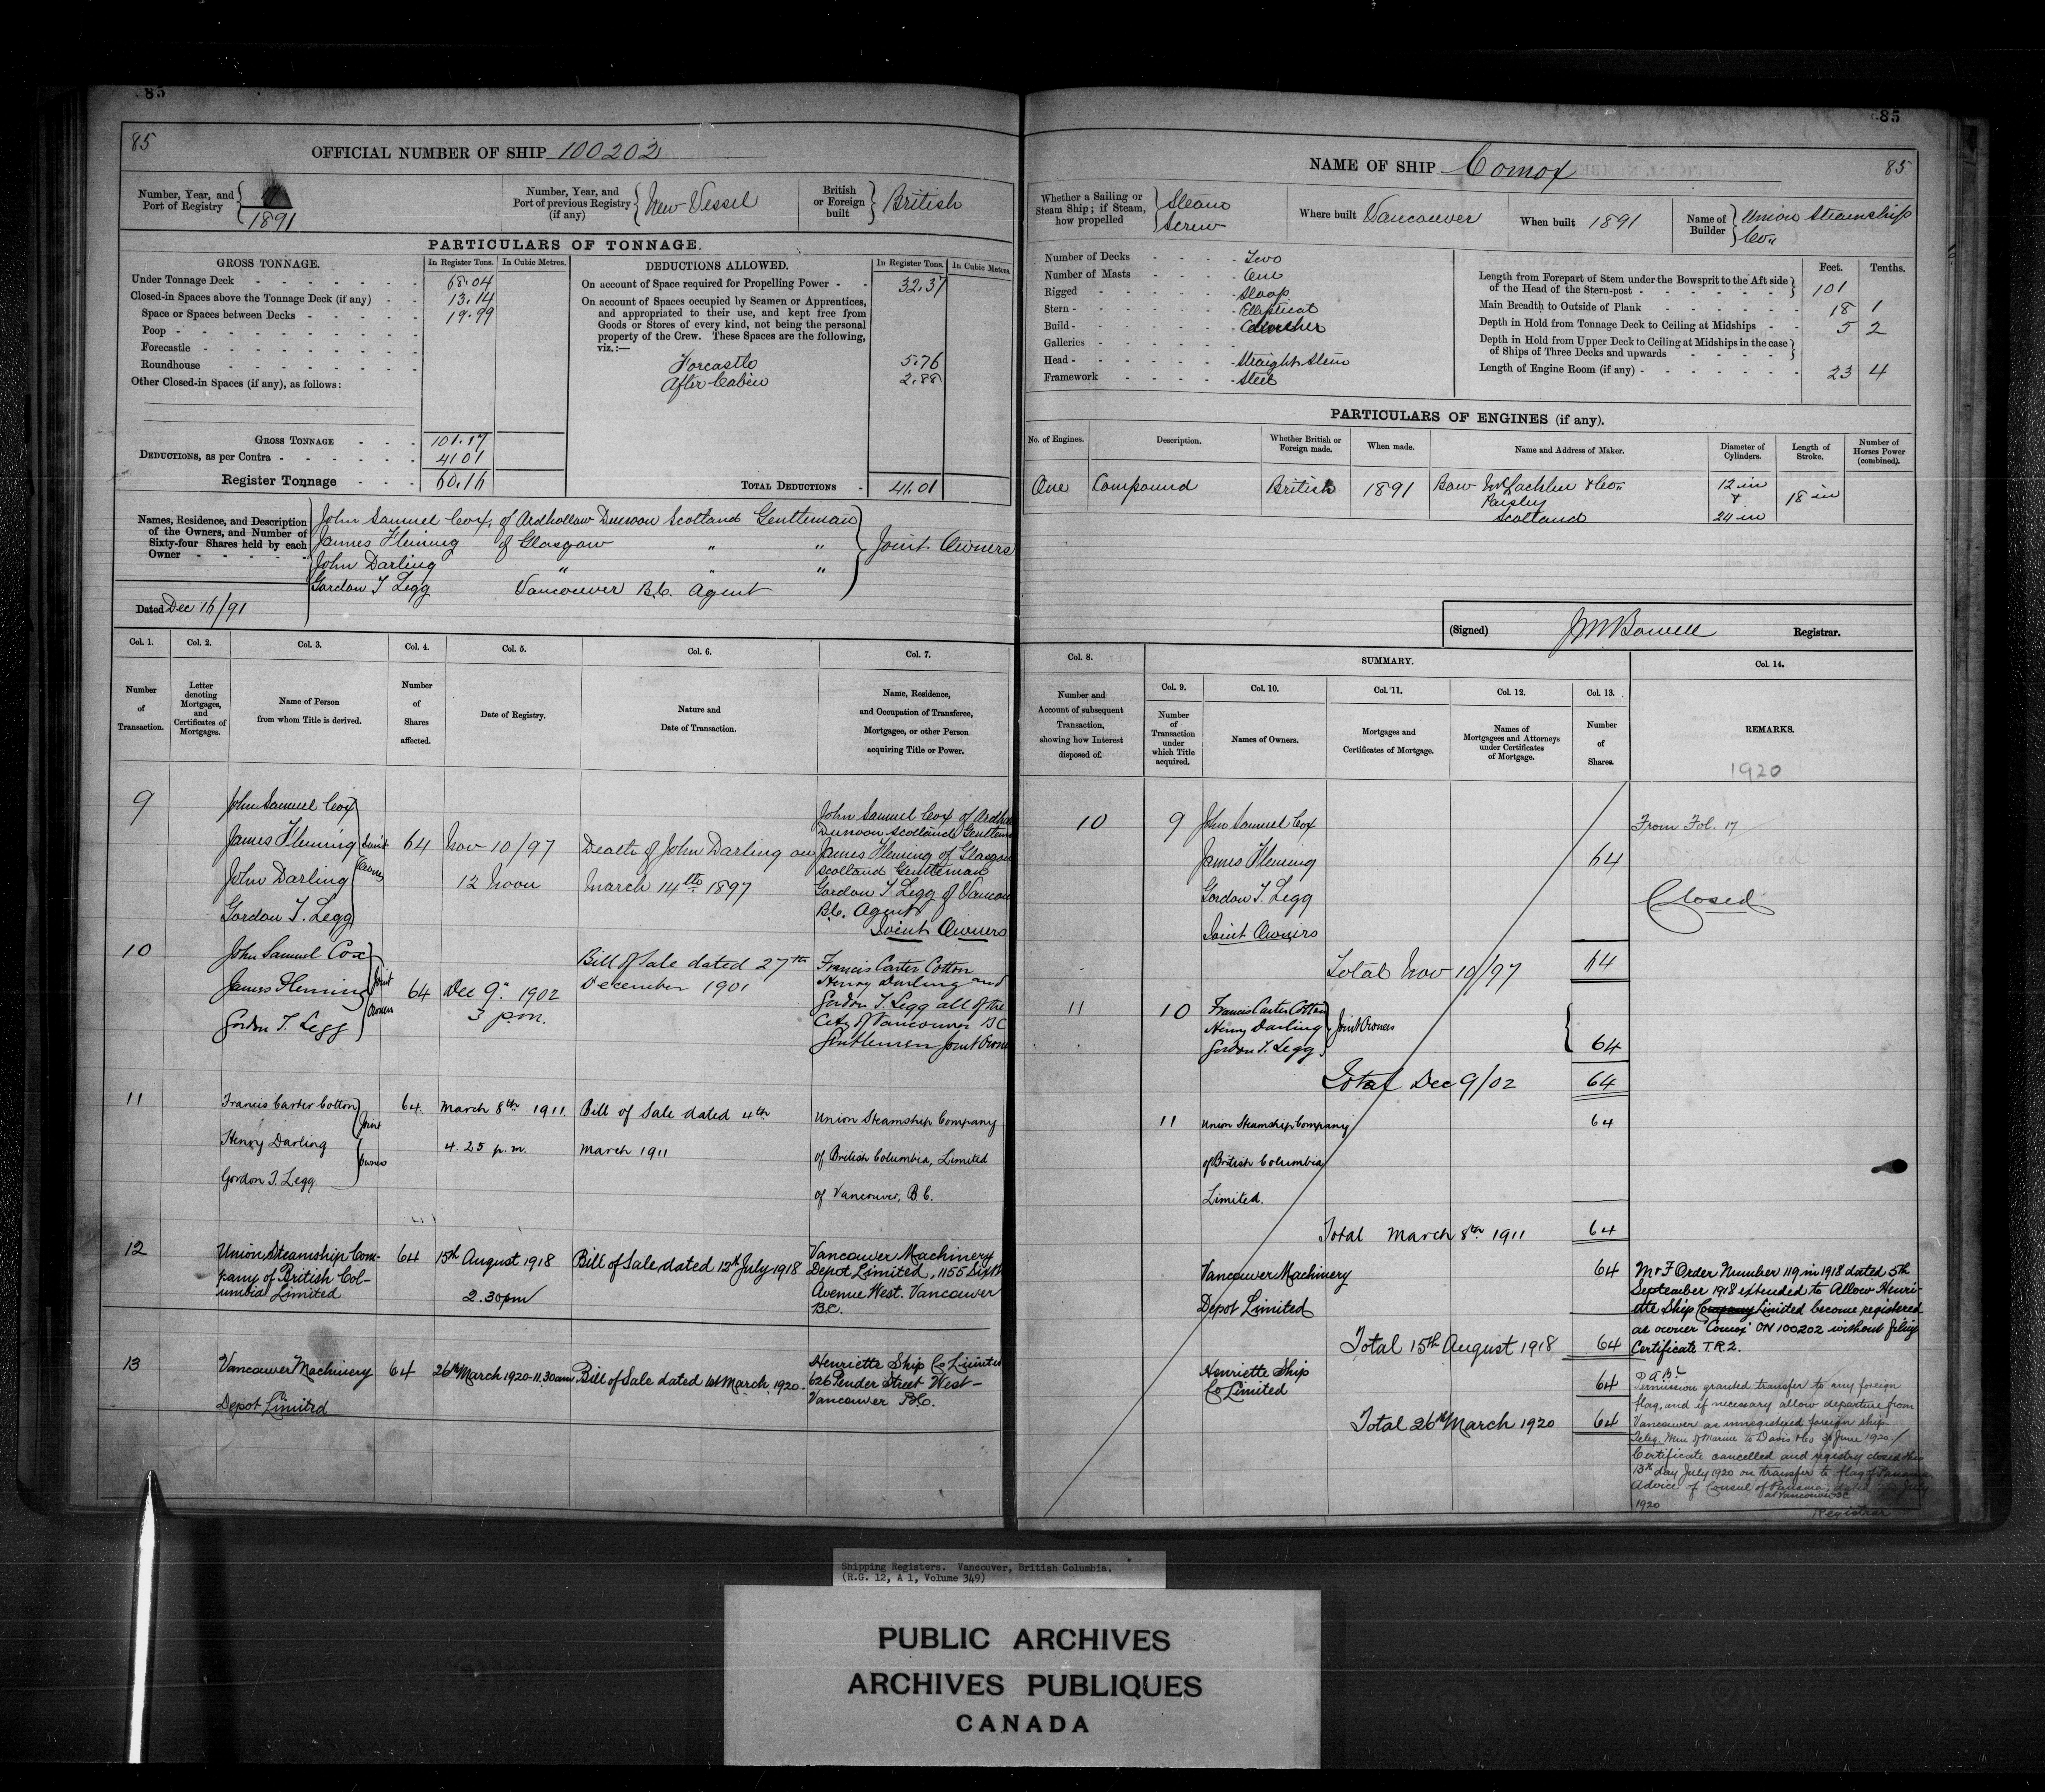 85
85
OFFICIAL NUMBER OF SHIP 100202
Number, Year, and Port of Registry
1891
Number, Year, and Port of previous Registry (if any)
New Vessel
British or Foreign built
British
PARTICULARS OF TONNAGE.
GROSS TONNAGE.
In Register Tons.
In Cubic Metres.
Under Tonnage Deck 68.04
Closed-in Spaces above the Tonnage Deck (if any) 13.14
Space or Spaces between Decks 19.99
Poop
Forecastle
Roundhouse
Other Closed-in Spaces (if any), as follows:
GROSS TONNAGE 101.17
DEDUCTIONS, as per Contra 41.01
Register Tonnage 60.16
DEDUCTIONS ALLOWED.
In Register Tons.
In Cubic Metres.
On account of Space required for Propelling Power 32.37
On account of Spaces occupied by Seamen or Apprentices,
and appropriated to their use, and kept free from
Goods or Stores of every kind, not being the personal
property of the Crew. These Spaces are the following,
viz.:—
Forcastle 5.76
After Cabin 2.88
TOTAL DEDUCTIONS 41.01
Names, Residence, and Description
of the Owners, and Number of
Sixty-four Shares held by each
Owner
John Samuel Cox, of Ardhollow Dunoon Scotland Gentleman
James Fleming of Glasgow " "
John Darling " "
Gordon T Legg Vancouver B.C. Agent
Joint Owners
Dated Dec 16/91
Col. 1.
Number of Transaction.
Col. 2.
Letter denoting Mortgages, and Certificates of Mortgages.
Col. 3.
Name of Person from whom Title is derived.
Col. 4.
Number of Shares affected.
Col. 5.
Date of Registry.
Col. 6.
Nature and Date of Transaction.
Col. 7.
Name, Residence, and Occupation of Transferee, Mortgagee, or other Person acquiring Title or Power.
9
John Samuel Cox
James Fleming
John Darling
Gordon T. Legg
Joint Owners
64
Nov 10/97
12 Noon
Death of John Darling on
March 14th 1897
John Samuel Cox of
Dunoon Scotland
James Fleming of Glasgow
Scotland Gentleman
Gordon T Legg of
B.C. Agent
Joint Owners
10
John Samuel Cox
James Fleming
Gordon T. Legg
Joint Owners
64
Dec 9" 1902
3 p.m.
Bill of Sale dated 27th
December 1901
Francis Carter Cotton
Henry Darling and
Gordon T. Legg all of the
City of Vancouver BC
Gentlemen Joint
11
Francis Carter Cotton
Henry Darling
Gordon T. Legg.
Joint Owners
64.
March 8th 1911.
4.25 p.m.
Bill of Sale dated 4th
March 1911
Union Steamship Company
of British Columbia, Limited
of Vancouver, B.C.
12
Union Steamship Com-
pany of British Col-
umbia Limited
64
15th August 1918
2.30pm
Bill of Sale dated 12th July 1918
Vancouver Machinery
Depot Limited, 1155 Sixth
Avenue West. Vancouver
B.C.
13
Vancouver Machinery
Depot Limited
64
26th March 1920-11.30am
Bill of Sale dated 1st March 1920-
Henriette Ship Co Limited
626 Pender Street West-
Vancouver B.C.
85
NAME OF SHIP Comox
85
Whether a Sailing or Steam Ship; if Steam, how propelled
Steam
Screw
Where built Vancouver
When built 1891
Name of Builder
Union Steamship
Co"
Number of Decks Two
Number of Masts One
Rigged Sloop
Stern Elliptical
Build
Galleries
Head Straight Stem
Framework Steel
Feet.
Tenths.
Length from Forepart of Stem under the Bowsprit to the Aft side
of the Head of the Stern-post 101
Main Breadth to Outside of Plank 18 1
Depth in Hold from Tonnage Deck to Ceiling at Midships 5 2
Depth in Hold from Upper Deck to Ceiling at Midships in the case
of Ships of Three Decks and upwards
Length of Engine Room (if any) 23 4
PARTICULARS OF ENGINES (if any).
No. of Engines.
Description.
Whether British or Foreign made.
When made.
Name and Address of Maker.
Diameter of Cylinders.
Length of Stroke.
Number of Horses Power (combined).
One
Compound
British
1891
Bow McLachlin & Co"
Paisley
Scotland
12 in
&
24 in
18 in
(Signed) JMBowell Registrar.
Col. 8.
Number and Account of subsequent Transaction, showing how Interest disposed of.
SUMMARY.
Col. 9.
Number of Transaction under which Title acquired.
Col. 10.
Names of Owners.
Col. 11.
Mortgages and Certificates of Mortgage.
Col. 12.
Names of Mortgagees and Attorneys under Certificates of Mortgage.
Col. 13.
Number of Shares.
Col. 14.
REMARKS.
1920
10
9
John Samuel Cox
James Fleming
Gordon T. Legg
Joint Owners
64
From Fol. 17
Closed
Total Nov 10/97 64
11
10
Francis Carter Cotton
Henry Darling
Gordon T. Legg
Joint Owners
64
Total Dec 9/02 64
11
Union Steamship Company
of British Columbia
Limited.
64
Total March 8th 1911 64
Vancouver Machinery
Depot Limited
64
Total 15th August 1918 64
Henriette Ship
Co Limited
64
Total 26th March 1920 64
M & F Order Number 119 in 1918 dated 5th
September 1918 extended to Allow Henri-
ette Ship Company Limited become registered
as owner "Comox" ON 100202 without filing
Certificate T.R.2.
Permission granted transfer to any foreign
flag, and if necessary allow departure from
Vancouver as unregistered foreign ship.
Teleg. Min of Marine to Davis & Co 30 June 1920.
Certificate cancelled and registry closed this
13th day July 1920 on transfer to flag of Panama
Advice of Consul of Panama, dated July
at Vancouver BC
1920
Registrar
Shipping Registers. Vancouver, British Columbia.
(R.G. 12, A 1, Volume 349)
PUBLIC ARCHIVES
ARCHIVES PUBLIQUES
CANADA